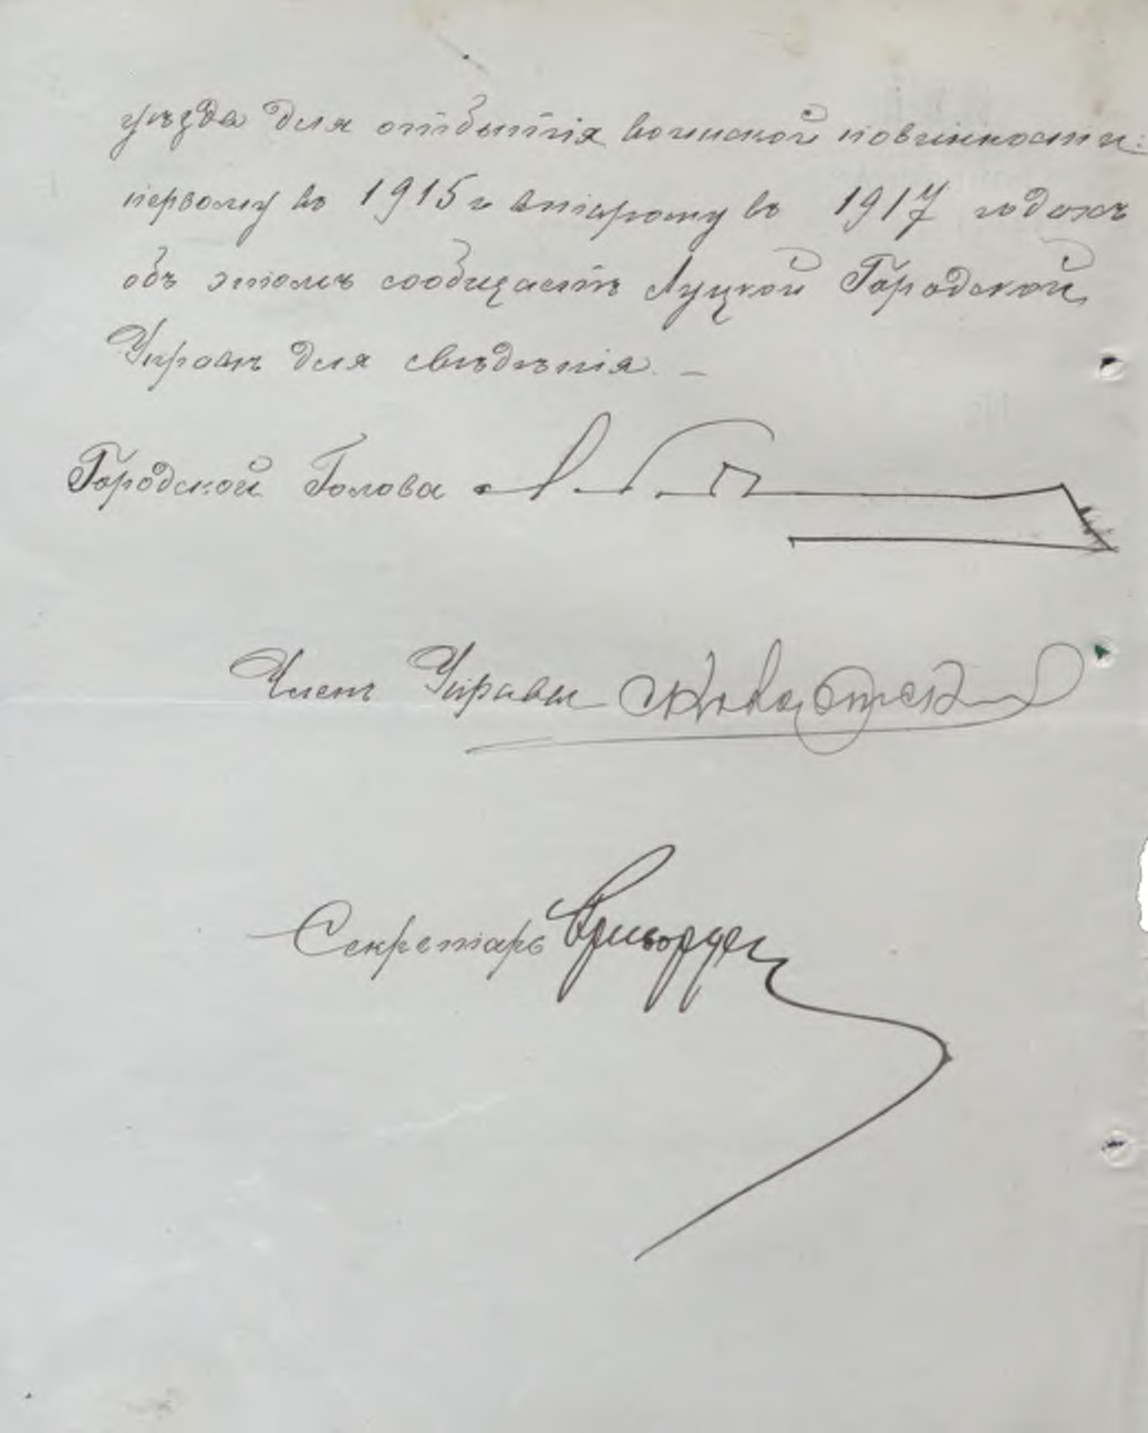 уѣзда для отбытія воинской повинности:
первому въ 1915 и второму въ 1917 годахъ
объ этомъ сообщаетъ Луцкой Городской
Управѣ для свѣдѣнія. –
Городской Голова
Членъ Управы
Секретарь